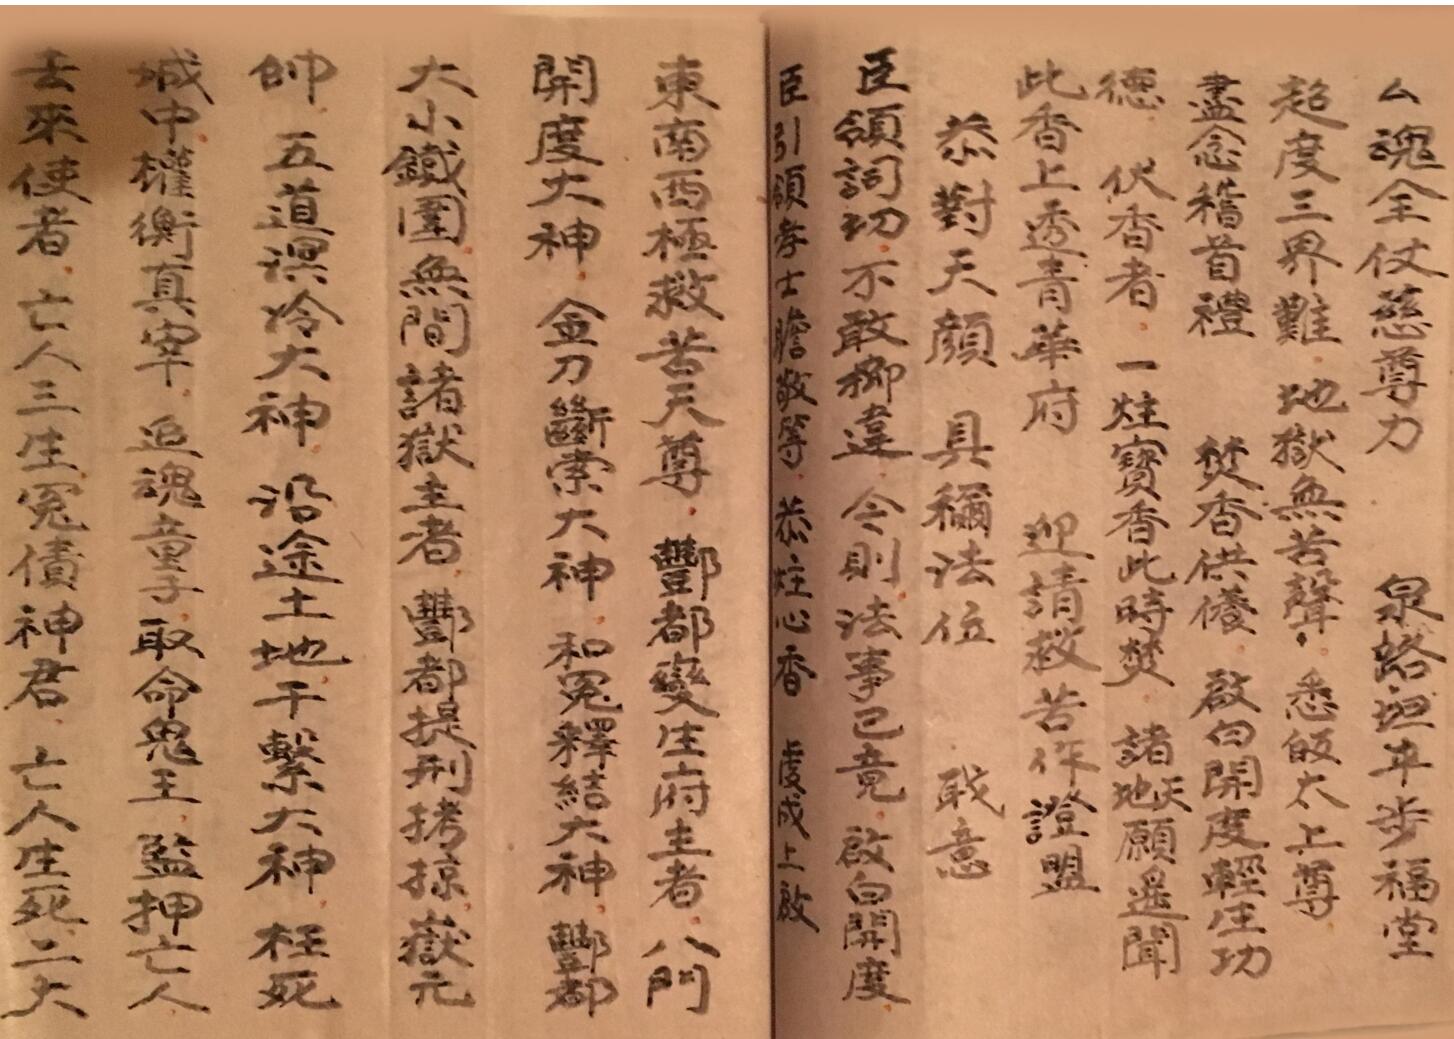 厶魂全仗慈尊力 泉路垣平步福堂
超度三界難 地獄無苦聲 悉皈太上尊
盡念稽首禮 焚香供養 啟白開度輕生功
德 伏香者 一炷寶香此時焚 諸天地願遥聞
此香上透青華府 迎請救苦作證盟
恭對天顏 具稱法位 戢意
臣領詞功不敢違 今則法事已竟 啟白開度
臣引領孝士瞻敬等 恭炷心香 虔成上啟
東南西極救苦天尊 酆都變生府主者 八門
開度大神 金刀斷索大神 和冤釋結大神 酆都
大小鐵圍無間諸獄主者 酆都提刑拷掠嶽元
帥 五道溟冷大神 沿途土地干繫大神 枉死
城中權衡真宰 追魂童子取命鬼王 監押亡人
去來使者 亡人三生冤債神君 亡人生死二大